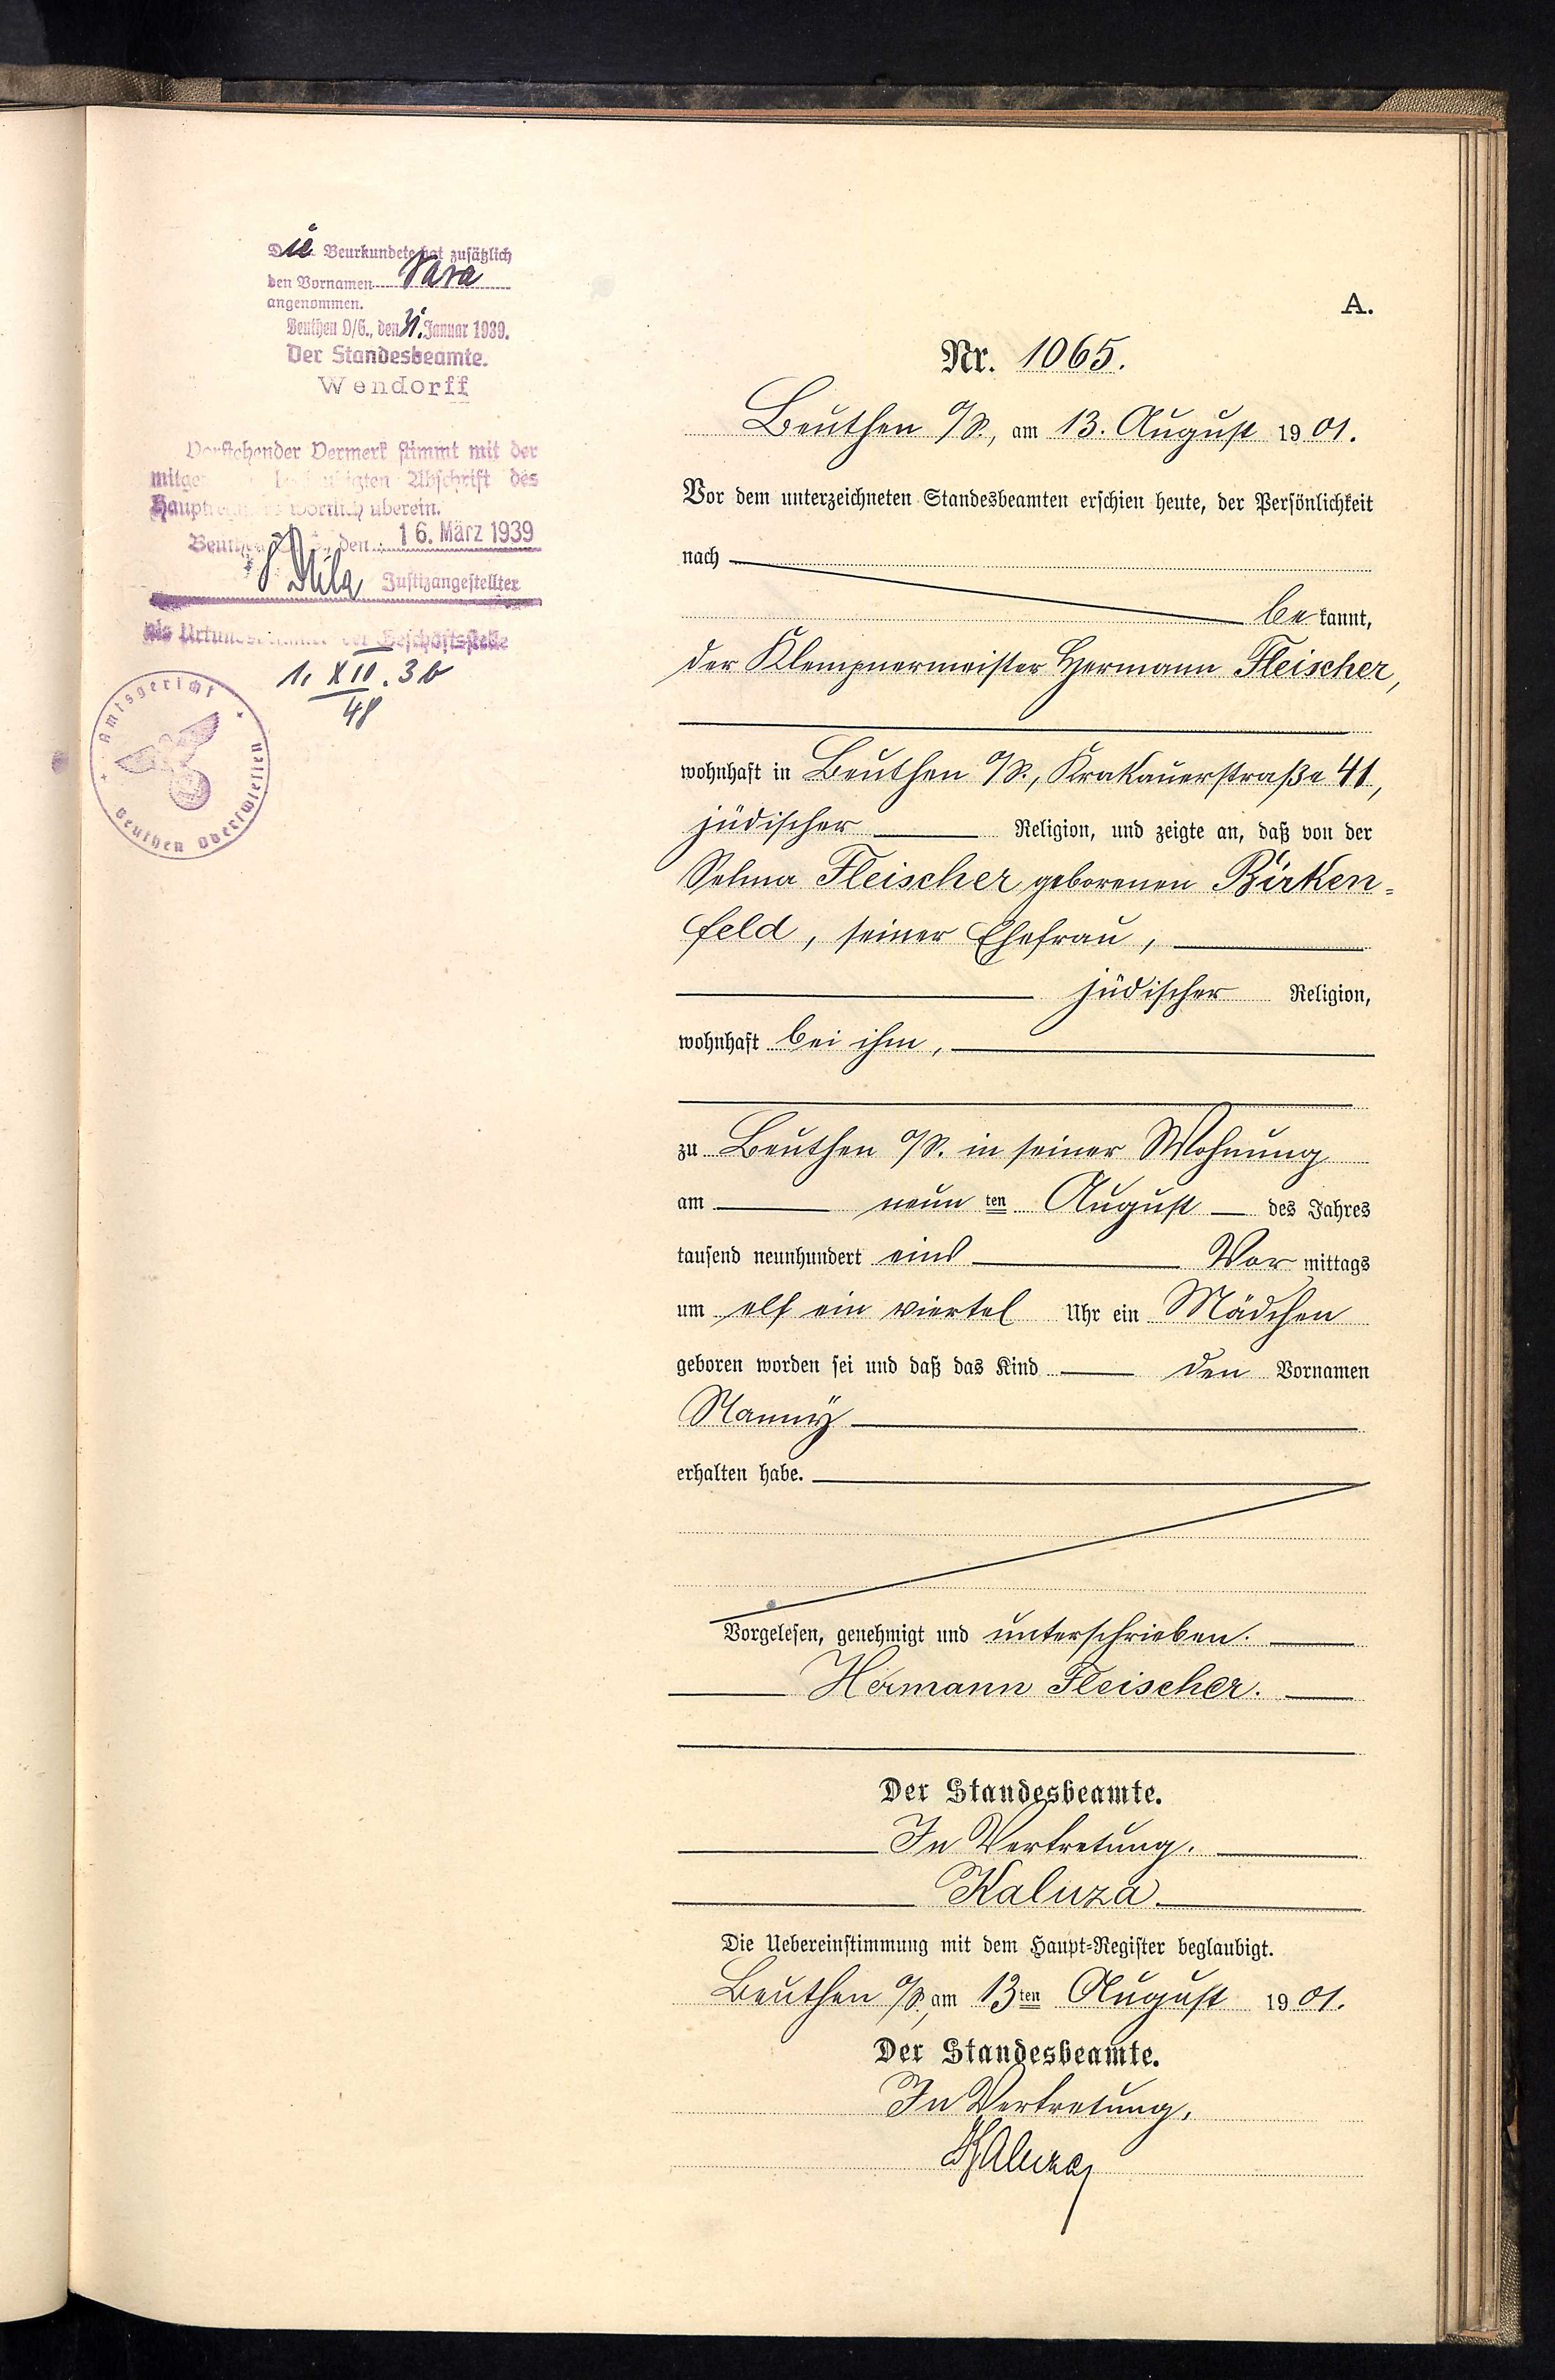 Die Beurkundete hat zusätzlich
den Vornamen Sara
angenommen.
Beuthen O/S., den 31. Januar 1939.
Der Standesbeamte.
Wendorff
Vorstehender Vermerk stimmt mit der
Abschrift des
wörtlich überein.
den 16. März 1939
Justizangestellter
als der Geschäftsstelle
1. XII. 36
48
Amtsgericht
Beuthen Oberschlesien
A.
Nr. 1065.
Beuthen O/S., am 13. August 1901.
Vor dem unterzeichneten Standesbeamten erschien heute, der Persönlichkeit
nach
be kannt,
der Klempnermeister Hermann Fleischer,
wohnhaft in Beuthen O/S., Krakauerstraße 41,
jüdischer Religion, und zeigte an, daß von der
Selma Fleischer geborenen Birken=
feld, seiner Ehefrau,
jüdischer Religion,
wohnhaft bei ihm,
zu Beuthen O/S. in seiner Wohnung
am neun ten August des Jahres
tausend neunhundert eins Vor mittags
um elf ein viertel Uhr ein Mädchen
geboren worden sei und daß das Kind den Vornamen
Nanny
erhalten habe.
Vorgelesen, genehmigt und unterschrieben.
Hermann Fleischer.
Der Standesbeamte.
In Vertretung.
Kaluza
Die Uebereinstimmung mit dem Haupt=Register beglaubigt.
Beuthen O/S., am 13ten August 1901.
Der Standesbeamte.
In Vertretung.
Kaluza